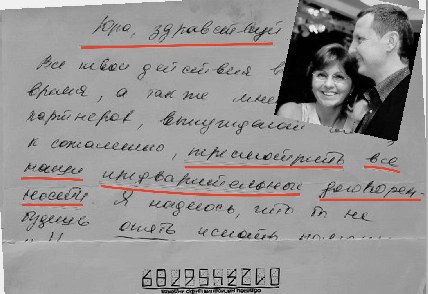 Юра, здравствуй
Все твои действия в
время, а так же мне
партнеров, вынуждают
к сожалению, пересмотреть все
наши предварительные договорен-
ности. Я надеюсь, что ты не
будешь опять искать